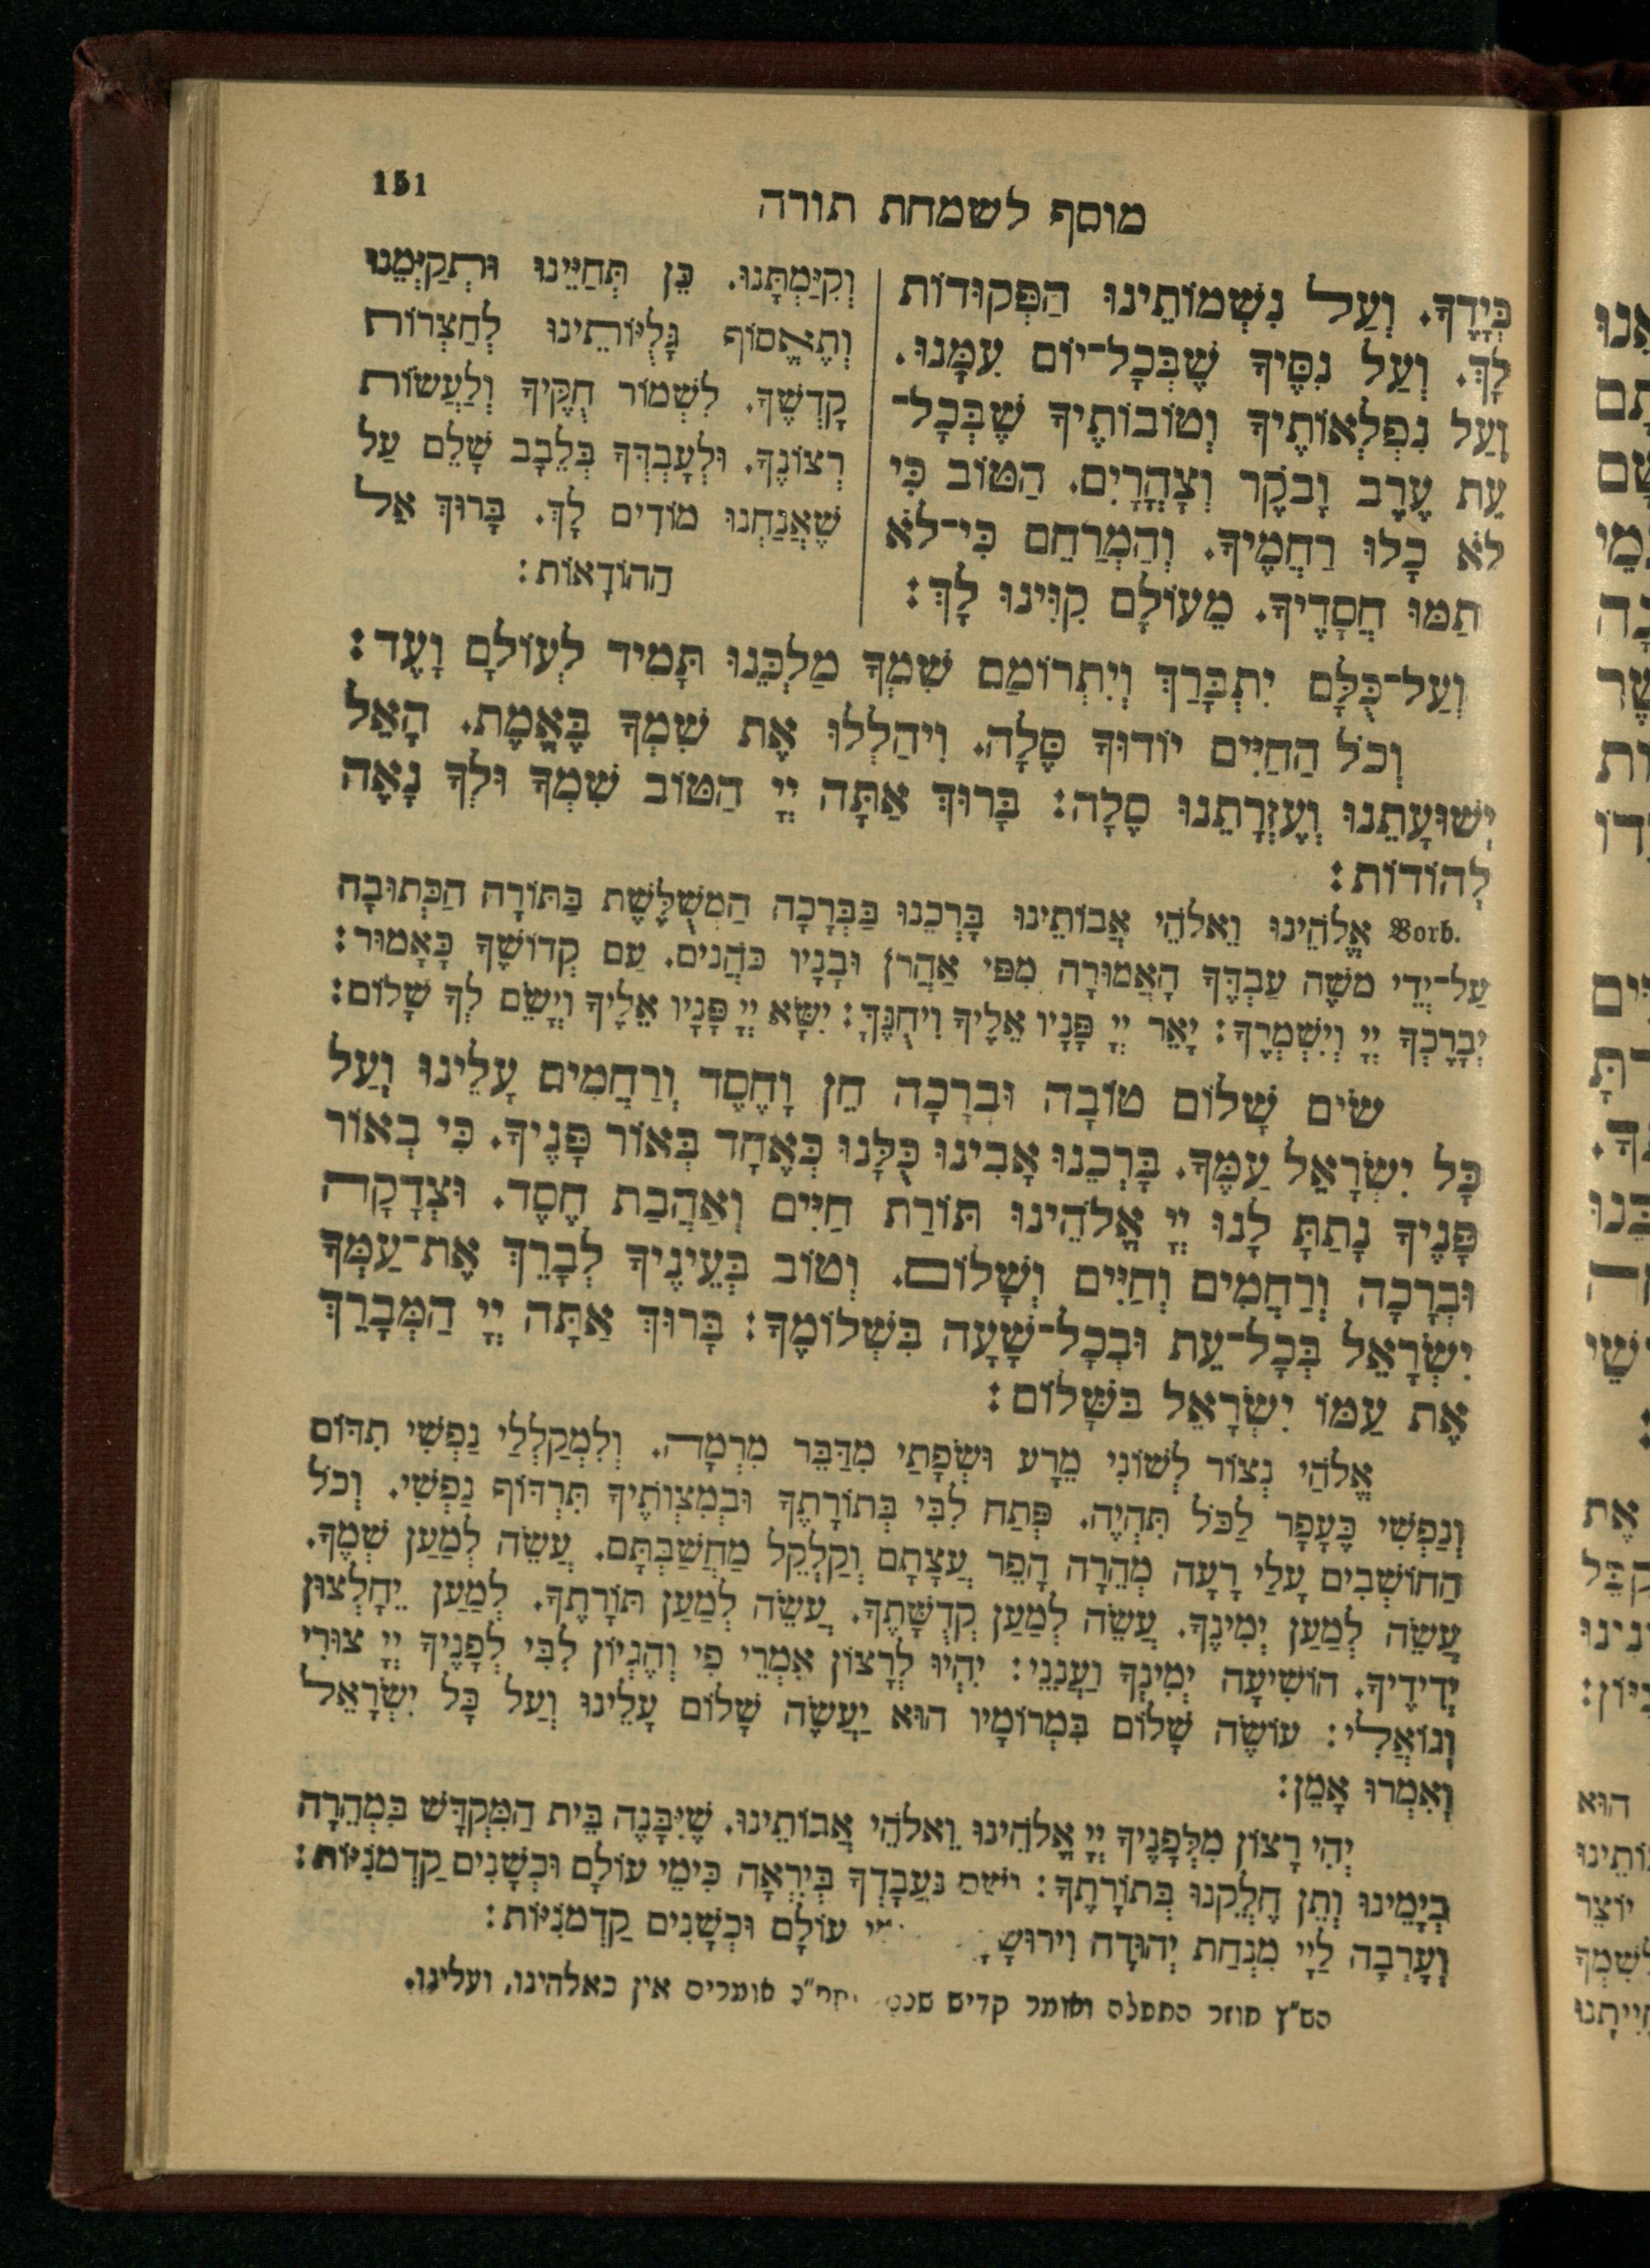 151
מוסף לשמחת תורה
בְּיָדֶךָ. וְעַל נִשְׁמוֹתֵינוּ הַפְּקוּדוֹת
לָךְ. וְעַל נִסֶּיךָ שֶׁבְּכָל־יוֹם עִמָּנוּ.
וְעַל נִפְלְאוֹתֶיךָ וְטוֹבוֹתֶיךָ שֶׁבְּכָל־
עֵת עֶרֶב וָבֹקֶר וְצָהֳרָיִם. הַטּוֹב כִּי
לֹא כָלוּ רַחֲמֶיךָ. וְהַמְרַחֵם כִּי־לֹא
תַמּוּ חֲסָדֶיךָ. מֵעוֹלָם קִוִּינוּ לָךְ:
וְקִיַּמְתָּנוּ. כֵּן תְּחַיֵּינוּ וּתְקַיְּמֵנוּ
וְתֶאֱסוֹף גָּלֻיּוֹתֵינוּ לְחַצְרוֹת
קָדְשֶׁךָ. לִשְׁמוֹר חֻקֶּיךָ וְלַעֲשׂוֹת
רְצוֹנֶךָ. וּלְעָבְדְּךָ בְּלֵבָב שָׁלֵם עַל
שֶׁאֲנַחְנוּ מוֹדִים לָךְ. בָּרוּךְ אֵל
הַהוֹדָאוֹת:
וְעַל־כֻּלָּם יִתְבָּרַךְ וְיִתְרוֹמַם שִׁמְךָ מַלְכֵּנוּ תָּמִיד לְעוֹלָם וָעֶד:
וְכֹל הַחַיִּים יוֹדוּךָ סֶּלָה. וִיהַלְלוּ אֶת שִׁמְךָ בֶּאֱמֶת. הָאֵל
יְשׁוּעָתֵנוּ וְעֶזְרָתֵנוּ סֶלָה: בָּרוּךְ אַתָּה יְיָ הַטּוֹב שִׁמְךָ וּלְךָ נָאֶה
לְהוֹדוֹת:
Vorb. אֱלֹהֵינוּ וֵאלֹהֵי אֲבוֹתֵינוּ בָּרְכֵנוּ בַּבְּרָכָה הַמְשֻׁלֶּשֶׁת בַּתּוֹרָה הַכְּתוּבָה
עַל־יְדֵי משֶׁה עַבְדֶּךָ הָאֲמוּרָה מִפִּי אַהֲרֹן וּבָנָיו כֹּהֲנִים. עַם קְדוֹשֶׁךָ כָּאָמוּר:
יְבָרֶכְךָ יְיָ וְיִשְׁמְרֶךָ: יָאֵר יְיָ פָּנָיו אֵלֶיךָ וִיחֻנֶּךָּ: יִשָּׂא יְיָ פָּנָיו אֵלֶיךָ וְיָשֵׂם לְךָ שָׁלוֹם:
שִׂים שָׁלוֹם טוֹבָה וּבְרָכָה חֵן וָחֶסֶד וְרַחֲמִים עָלֵינוּ וְעַל
כָּל יִשְׂרָאֵל עַמֶּךָ. בָּרְכֵנוּ אָבִינוּ כֻּלָּנוּ כְּאֶחָד בְּאוֹר פָּנֶיךָ. כִּי בְאוֹר
פָּנֶיךָ נָתַתָּ לָנוּ יְיָ אֱלֹהֵינוּ תּוֹרַת חַיִּים וְאַהֲבַת חֶסֶד. וּצְדָקָה
וּבְרָכָה וְרַחֲמִים וְחַיִּים וְשָׁלוֹם. וְטוֹב בְּעֵינֶיךָ לְבָרֵךְ אֶת־עַמְּךָ
יִשְׂרָאֵל בְּכָל־עֵת וּבְכָל־שָׁעָה בִּשְׁלוֹמֶךָ: בָּרוּךְ אַתָּה יְיָ הַמְבָרֵךְ
אֶת עַמּוֹ יִשְׂרָאֵל בַּשָּׁלוֹם:
אֱלֹהַי נְצוֹר לְשׁוֹנִי מֵרָע וּשְׂפָתַי מִדַּבֵּר מִרְמָה. וְלִמְקַלְלַי נַפְשִׁי תִדּוֹם
וְנַפְשִׁי כֶּעָפָר לַכֹּל תִּהְיֶה. פְּתַח לִבִּי בְּתוֹרָתֶךָ וּבְמִצְוֹתֶיךָ תִּרְדּוֹף נַפְשִׁי. וְכֹל
הַחוֹשְׁבִים עָלַי רָעָה מְהֵרָה הָפֵר עֲצָתָם וְקַלְקֵל מַחֲשַׁבְתָּם. עֲשֵׂה לְמַעַן שְׁמֶךָ.
עֲשֵׂה לְמַעַן יְמִינֶךָ. עֲשֵׂה לְמַעַן קְדֻשָּׁתֶךָ. עֲשֵׂה לְמַעַן תּוֹרָתֶךָ. לְמַעַן יֵחָלְצוּן
יְדִידֶיךָ. הוֹשִׁיעָה יְמִינְךָ וַעֲנֵנִי: יִהְיוּ לְרָצוֹן אִמְרֵי פִי וְהֶגְיוֹן לִבִּי לְפָנֶיךָ יְיָ צוּרִי
וְגוֹאֲלִי: עוֹשֶׂה שָׁלוֹם בִּמְרוֹמָיו הוּא יַעֲשֶׂה שָׁלוֹם עָלֵינוּ וְעַל כָּל יִשְׂרָאֵל
וְאִמְרוּ אָמֵן:
יְהִי רָצוֹן מִלְּפָנֶיךָ יְיָ אֱלֹהֵינוּ וֵאלֹהֵי אֲבוֹתֵינוּ. שֶׁיִּבָּנֶה בֵּית הַמִּקְדָּשׁ בִּמְהֵרָה
בְיָמֵינוּ וְתֵן חֶלְקֵנוּ בְּתוֹרָתֶךָ: וְשָׁם נַעֲבָדְךָ בְּיִרְאָה כִּימֵי עוֹלָם וּכְשָׁנִים קַדְמֹנִיּוֹת:
וְעָרְבָה לַיְיָ מִנְחַת יְהוּדָה עוֹלָם וּכְשָׁנִים קַדְמוֹנִיּוֹת:
הש״ץ חוזר התפלה ואומר קדיש אומרים אין כאלהינו, ועלינו.